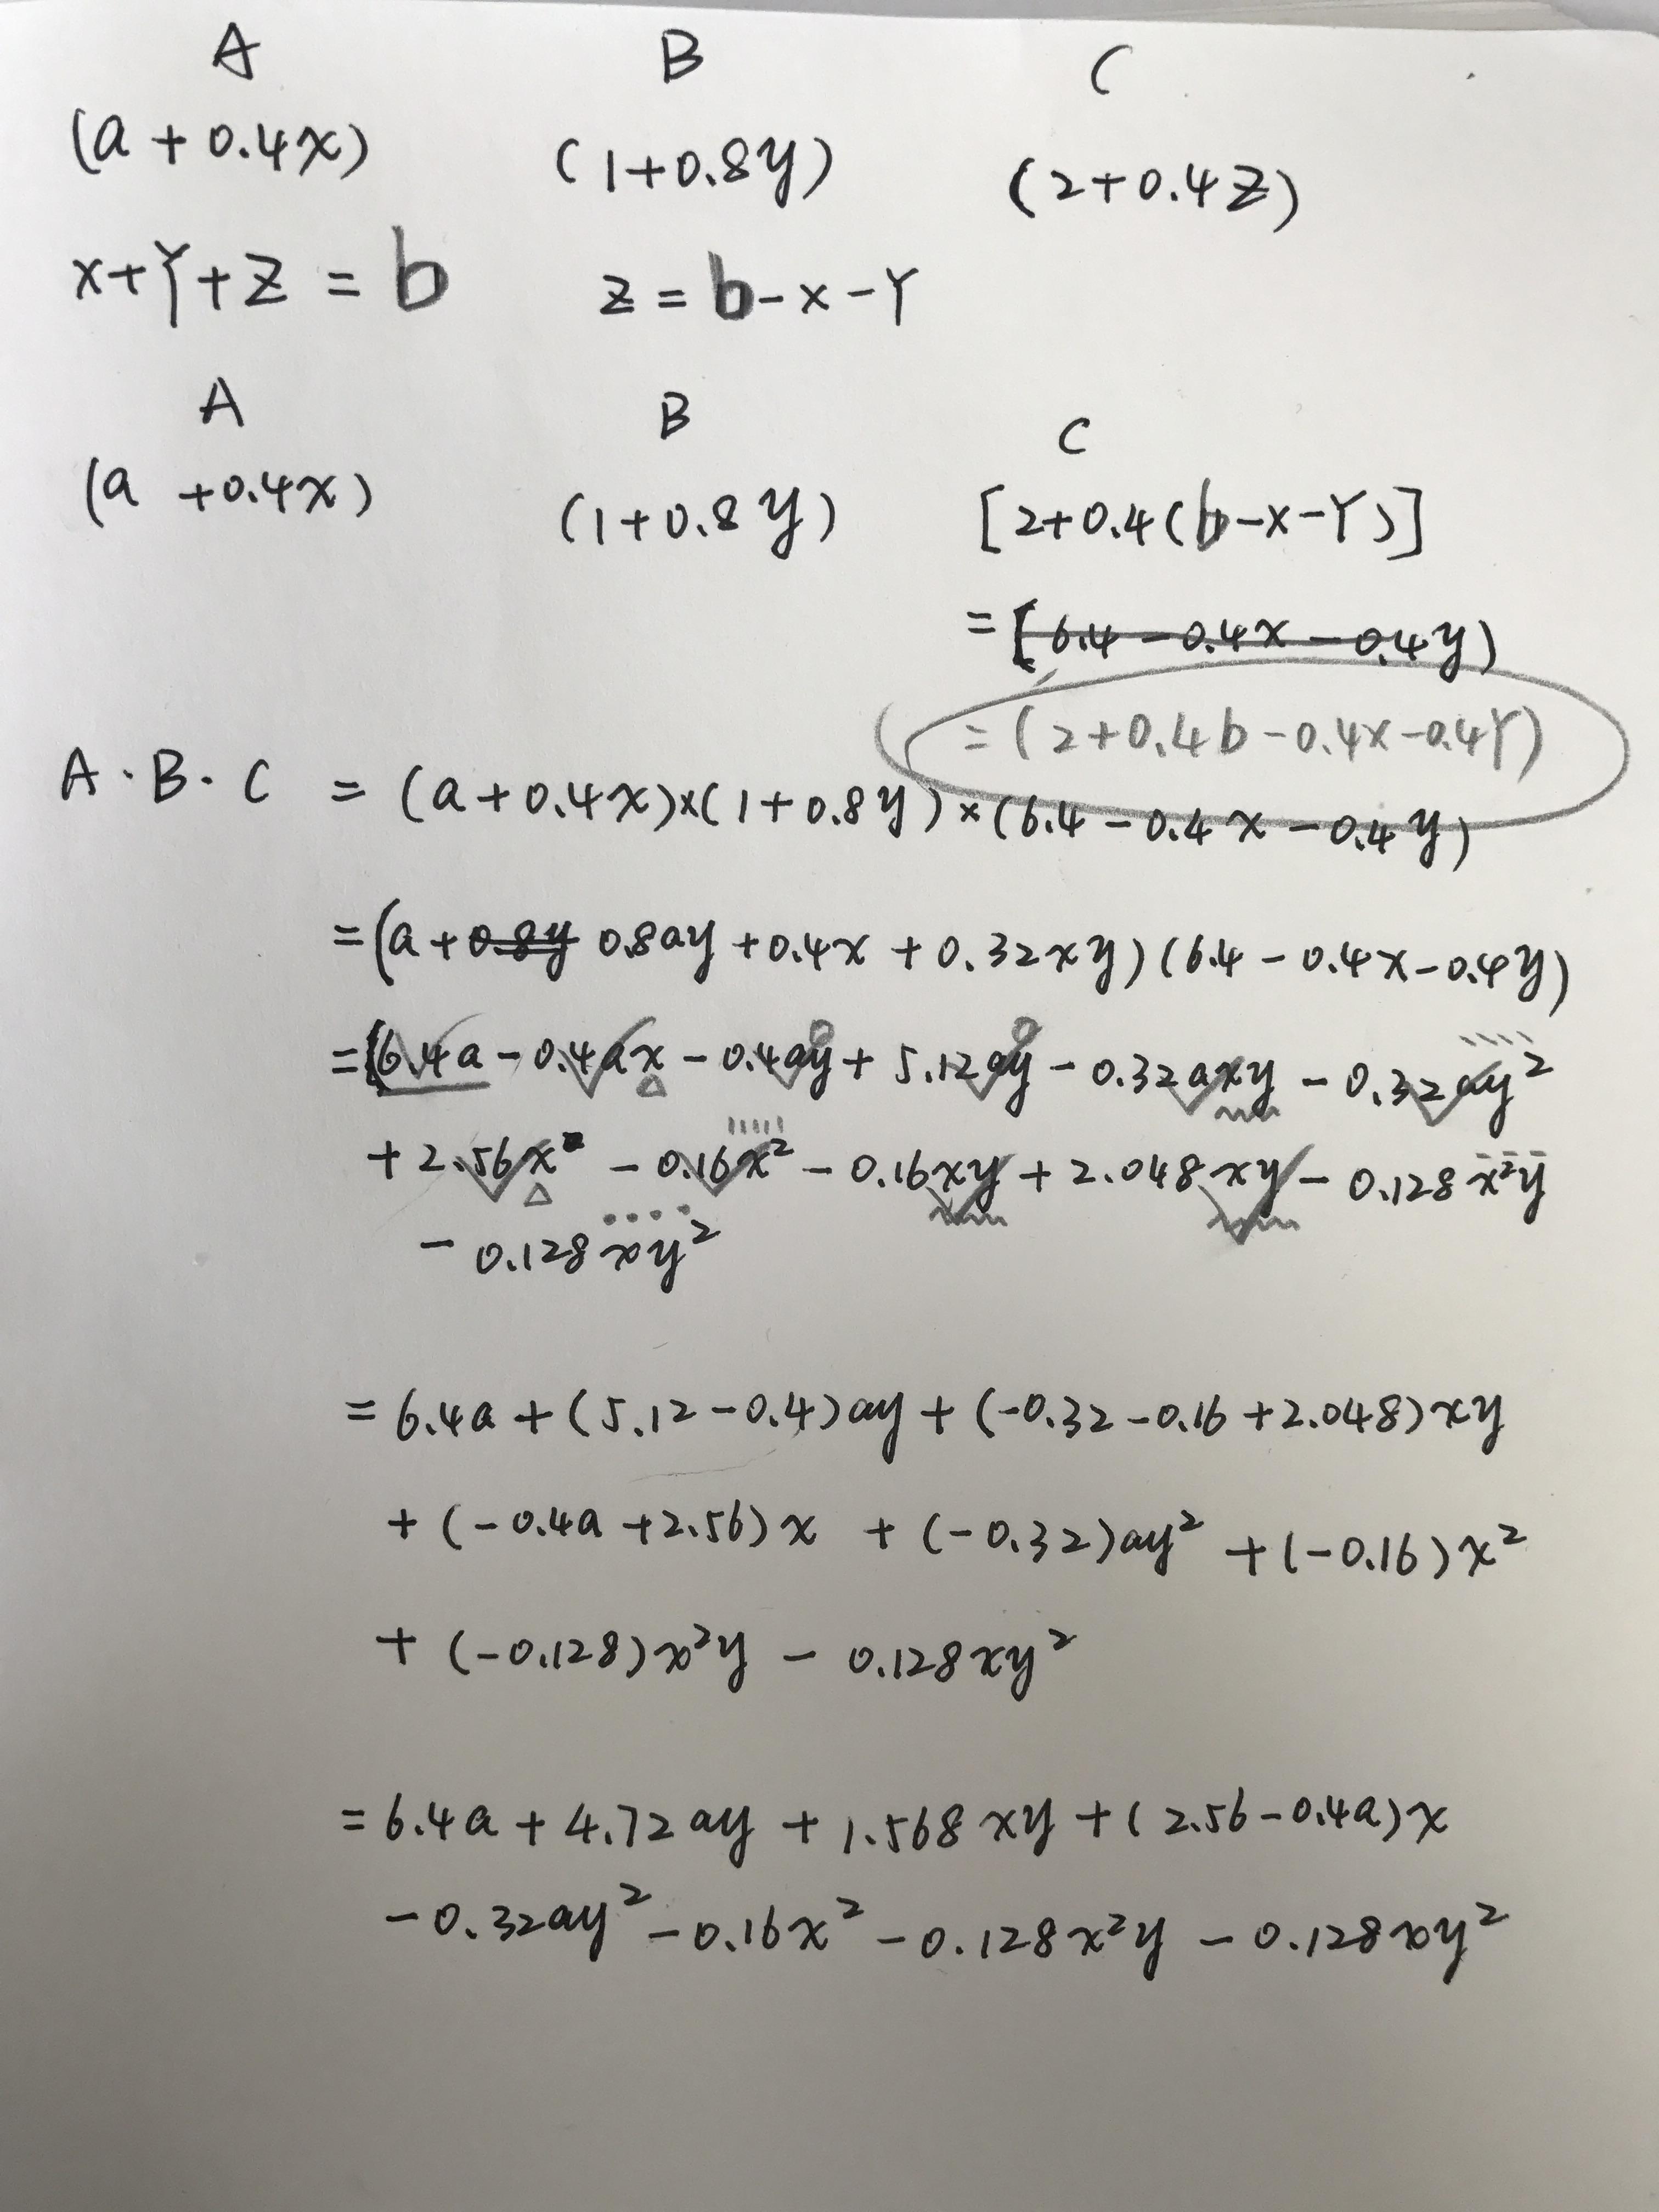 A B C
(a + 0.4x) (1+0.8y) (2+0.4z)
x+Y+z = b z = b-x-Y
A B C
(a +0.4x) (1+0.8y) [2+0.4(b-x-Y)]
= [6.4 - 0.4x - 0.4y)
= (2+0.4b-0.4x-0.4Y)
A·B·C = (a+0.4x)×(1+0.8y)×(6.4-0.4x-0.4y)
=(a+0.8y 0.8ay+0.4x+0.32xy)(6.4-0.4x-0.4y)
=(6.4a-0.4ax-0.4ay+5.12ay-0.32axy-0.32ay²
+2.56x-0.16x²-0.16xy+2.048xy-0.128x²y
-0.128xy²
=6.4a+(5.12-0.4)ay+(-0.32-0.16+2.048)xy
+(-0.4a+2.56)x+(-0.32)ay²+(-0.16)x²
+(-0.128)x²y-0.128xy²
=6.4a+4.72ay+1.568xy+(2.56-0.4a)x
-0.32ay²-0.16x²-0.128x²y-0.128xy²